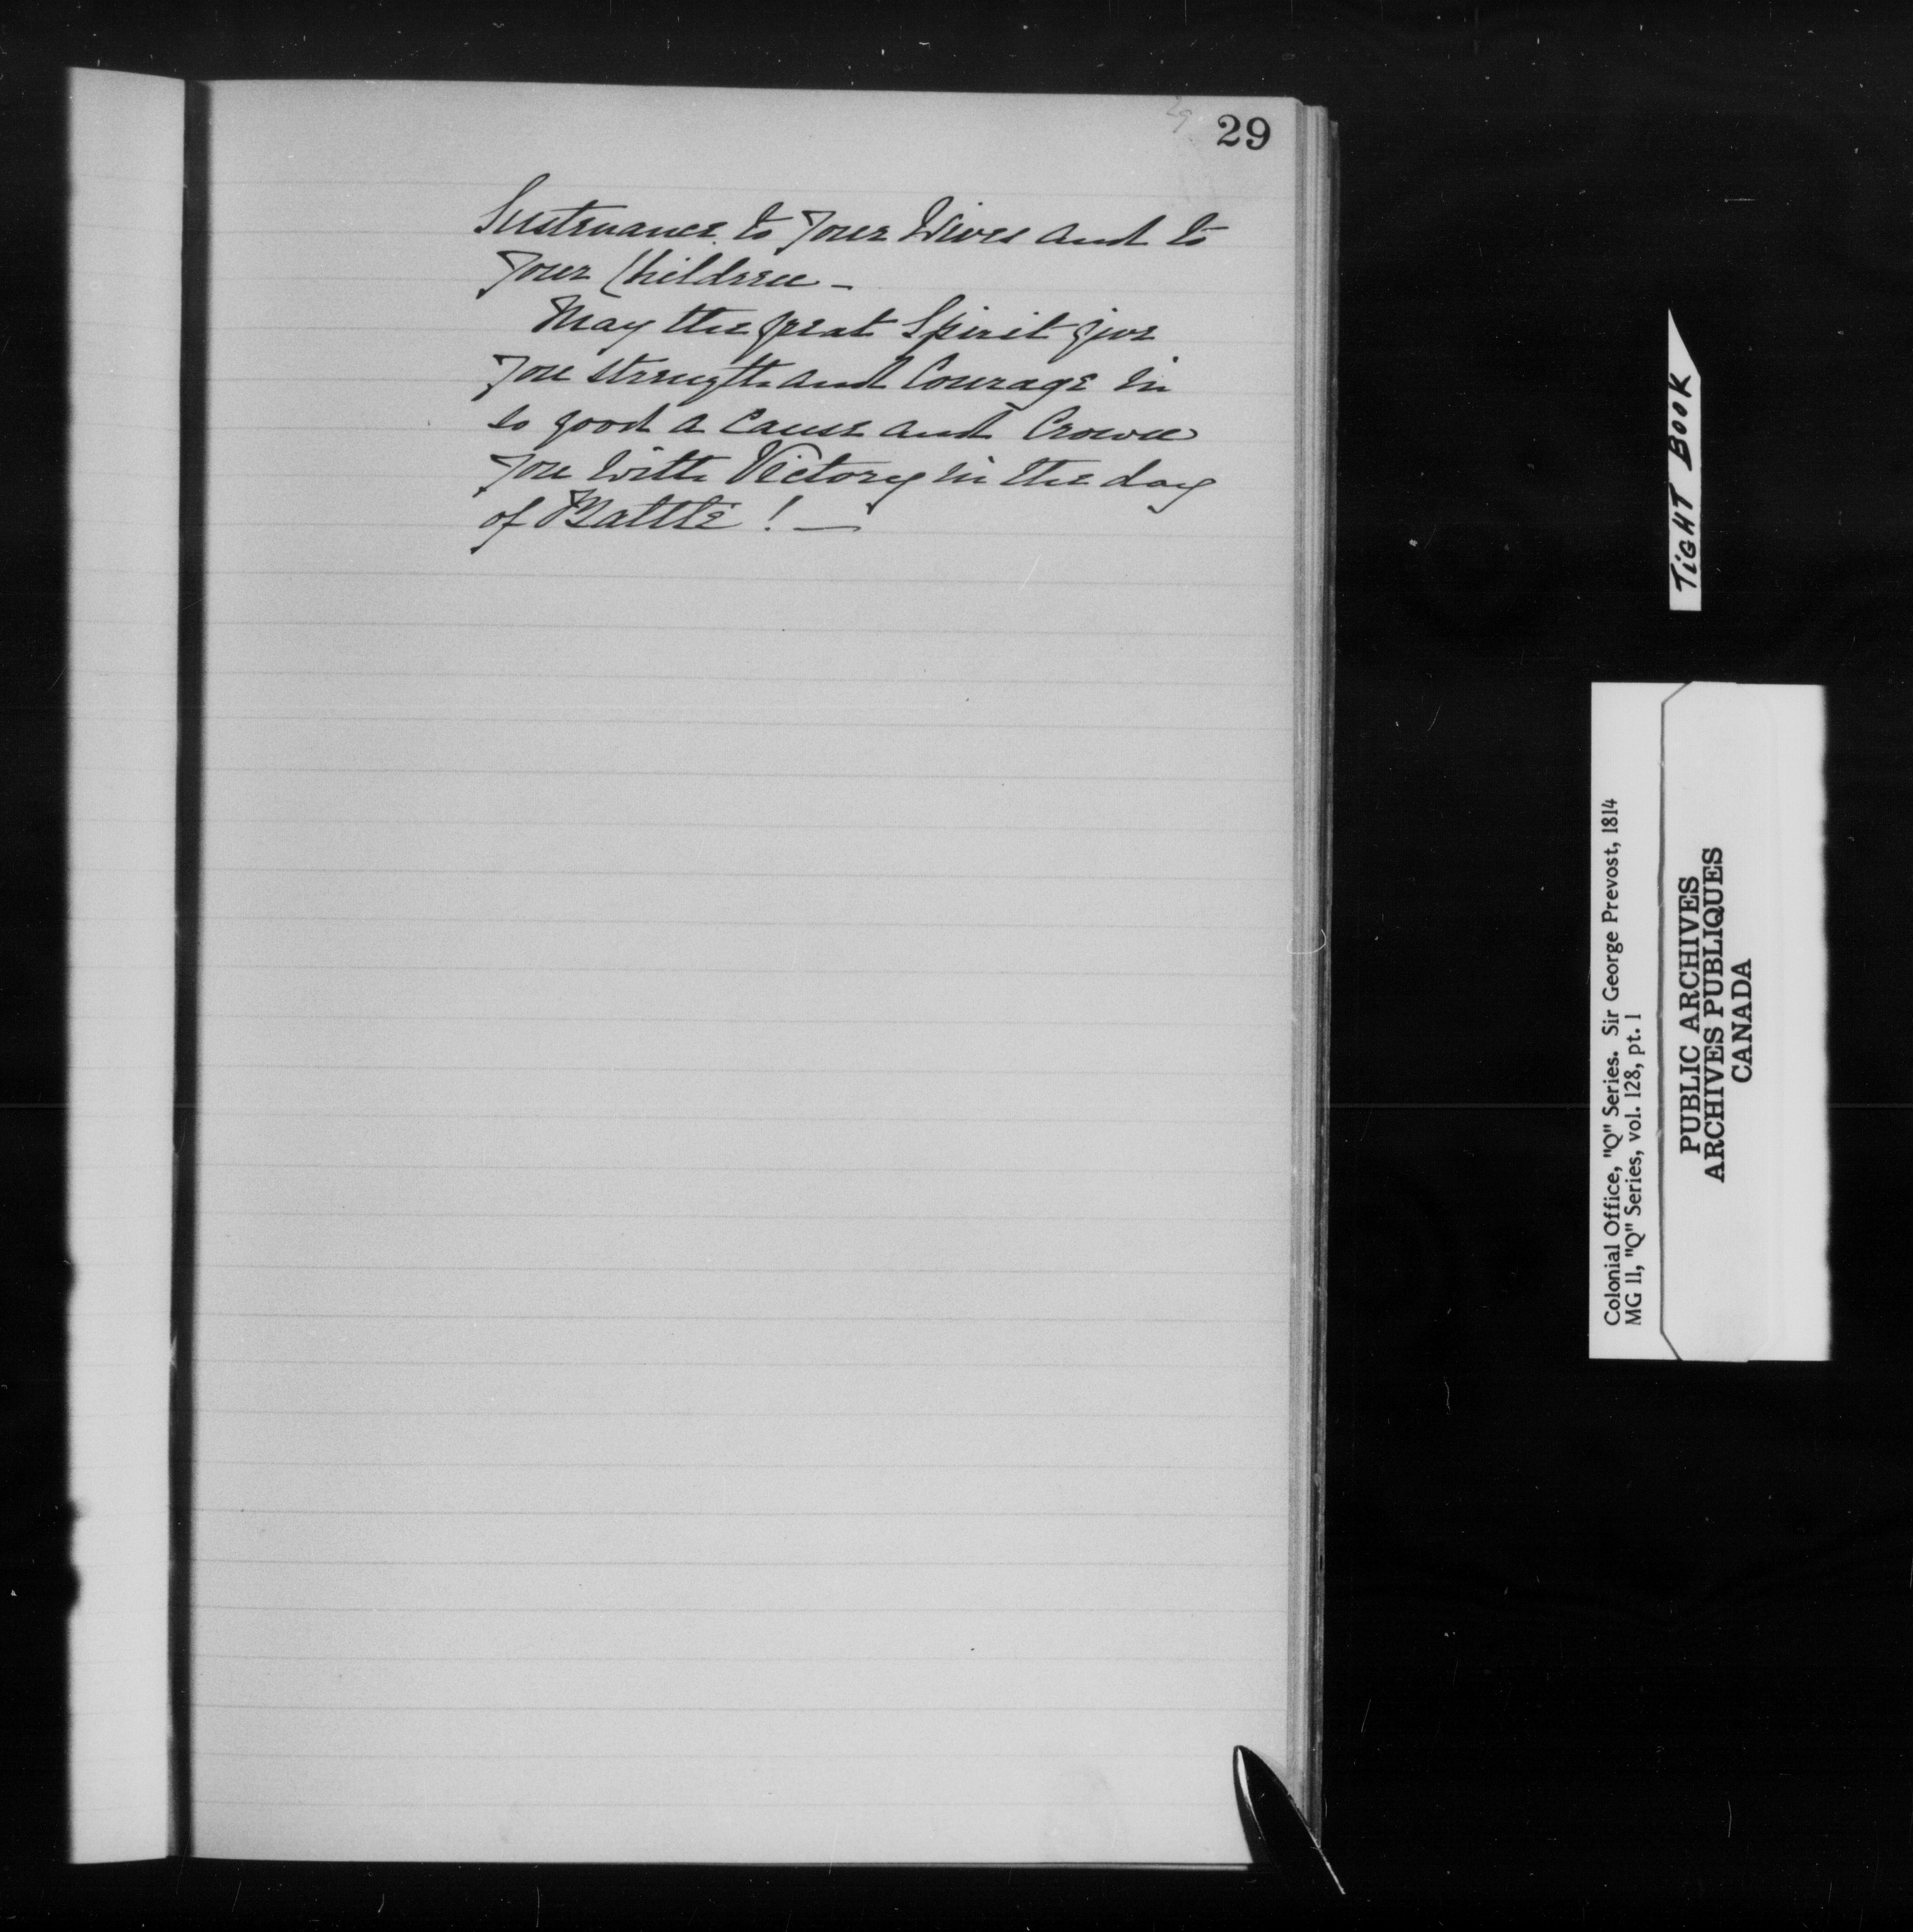 29
29
Sustenance to your Wives and to
your Children –
May the great Spirit give
you strength and Courage in
so good a Cause and Crown
you with Victory in the day
of Battle ! —
TIGHT BOOK
Colonial Office, "Q" Series. Sir George Prevost, 1814
MG 11, "Q" Series, vol. 128, pt. 1
PUBLIC ARCHIVES
ARCHIVES PUBLIQUES
CANADA